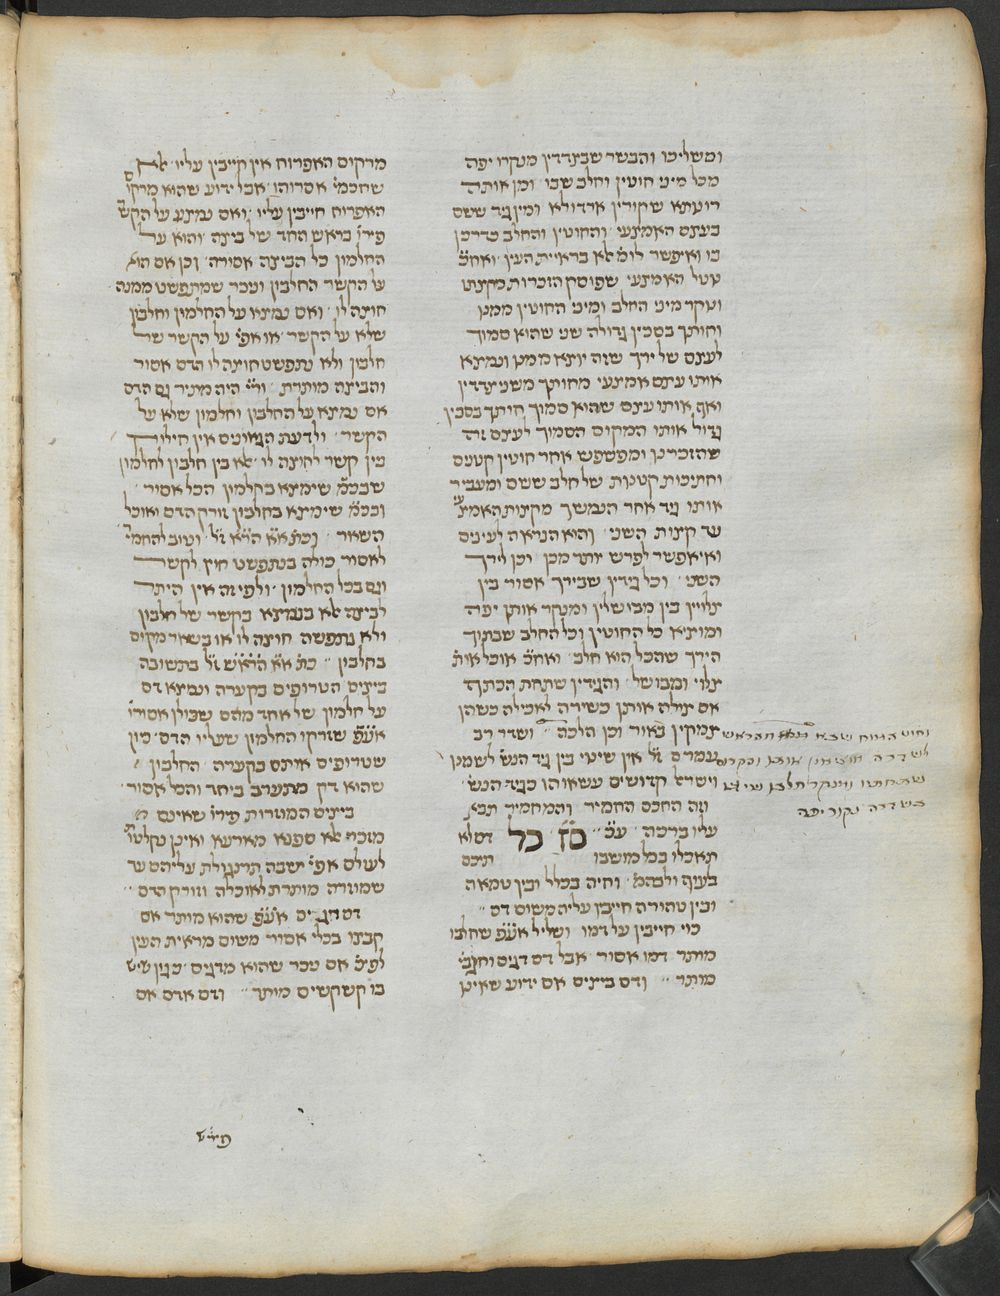 ומשליכו והבשר שבצדדין מנקרו יפה
מכל מיני חוטין וחלב שבו ומן אותה
רועתא שקורין ארדולא ומין גיד ששם
בעצם האמצעי והחוטין והחלב כדרכן
בו ואיפשר לומ׳ לא בראיית העין ואח״כ
נוטל האמצעי שפוסק הזכרות מקצתו
ונוקר מיני החלב ומיני החוטין ממנו
וחותך בסכין גדולה שני שהוא סמוך
לעצם של ירך שזה יוצא ממנו ונמצא
אותו עצם אמצעי מחותך משני צדדין
ואף אותו עצם שהוא סמוך חותך בסכין
גדול אותו המקום הסמוך לעצם זה
שהזכרנו ומפשפש אחר חוטין קטנים
וחתיכות קטנות של חלב ששם ומעביר
אותו גיד אחד הנמשך מקצות האמצעי
עד קצות השני והוא הנראה לעינים
ואי איפשר לפרש יותר מכן וכן לירך
השני וכל גידין שבירך אסור בין
צלויין בין מבושלין ומנקר אותן יפה
ומוציא כל החוטין וכל החלב שבתוך
הירך שהכל הוא חלב ואח״כ אוכל אות׳
צלוי ומבושל והגידין שתחת הכתף
אם צולה אותן כשירה לאכילה כשהן
צמוקין באור וכן הלכה ושדר רב
עמרם ז״ל אין שינוי בין גיד הנש׳ לשמנו
וישראל קדושים עשאוהו כגיד הנש׳
וזה החכם החמיר והמחמיר תבא
עליו ברכה עכ״ל סמן כל דם לא
תאכלו בכל מושבותיכם
בעוף ולבהמ׳ וחיה בכלל ובין טמאה
ובין טהורה חייבין עליה משום דם
כוי חייבין על דמו ושליל אע״פ שחלבו
מותר דמו אסור אבל דם דגים וחגבי׳
מותר ודם ביצים אם ידוע שאינן
מרקום האפרוח אין חייבין עליו אלא
שחכמי׳ אסרוהו אבל ידוע שהוא מרקום
האפרוח חייבין עליו ואם נמצא על הקשר
פירו׳ בראש החד של ביצה והוא על
החלמון כל הביצה אסורה וכן אם הוא
על הקשר החלבון ונכר שמתפשט ממנה
חוצה לו ואם נמצא על החלמון וחלבון
שלא על הקשר או אפי׳ על הקשר של
חלבון ולא נתפשט חוצה לו הדם אסור
והביצה מותרת ור״י היה מתיר גם הדם
אם נמצא על החלבון וחלמון שלא על
הקשר ולדעת הגאונים אין חילוק
בין קשר לחוצה לו אלא בין חלבון לחלמון
שבכ״מ שימצא בחלמון הכל אסור
ובכ״מ שימצא בחלבון זורק הדם ואוכל
השאר וכת׳ א״א הרא״ש ז״ל וטוב להחמי׳
לאסור כולה בנתפשט חוץ לקשר
וגם בכל החלמון ולפי זה אין היתר
לביצה אלא בנמצא בקשר של חלבון
ולא נתפשה חוצה לו או בשאר מקום
בחלבון כת׳ א״א הרא״ש ז״ל בתשובה
ביצים הטרופים בקערה ונמצא דם
על חלמון של אחד מהם שכולן אסורו׳
אע״פ שזרקו החלמון שעליו הדם כיון
שטרופים אותם בקערה החלבון
שהוא דק מתערב ביחד והכל אסור
ביצים המוזרות פירו׳ שאינם
מזכר אלא ספנא מארעא ואינן נקלטות
לעולם אפי׳ ישבה תרנגולת עליהם עד
שמוזרה מותרת לאוכלה וזורק הדם
דם חגבים אע״פ שהוא מותר אם
קבצו בכלי אסור משום מראית העין
לפיכ׳ אם נכר שהוא מדגים כגון שיש
בו קשקשים מותר ודם אדם אם